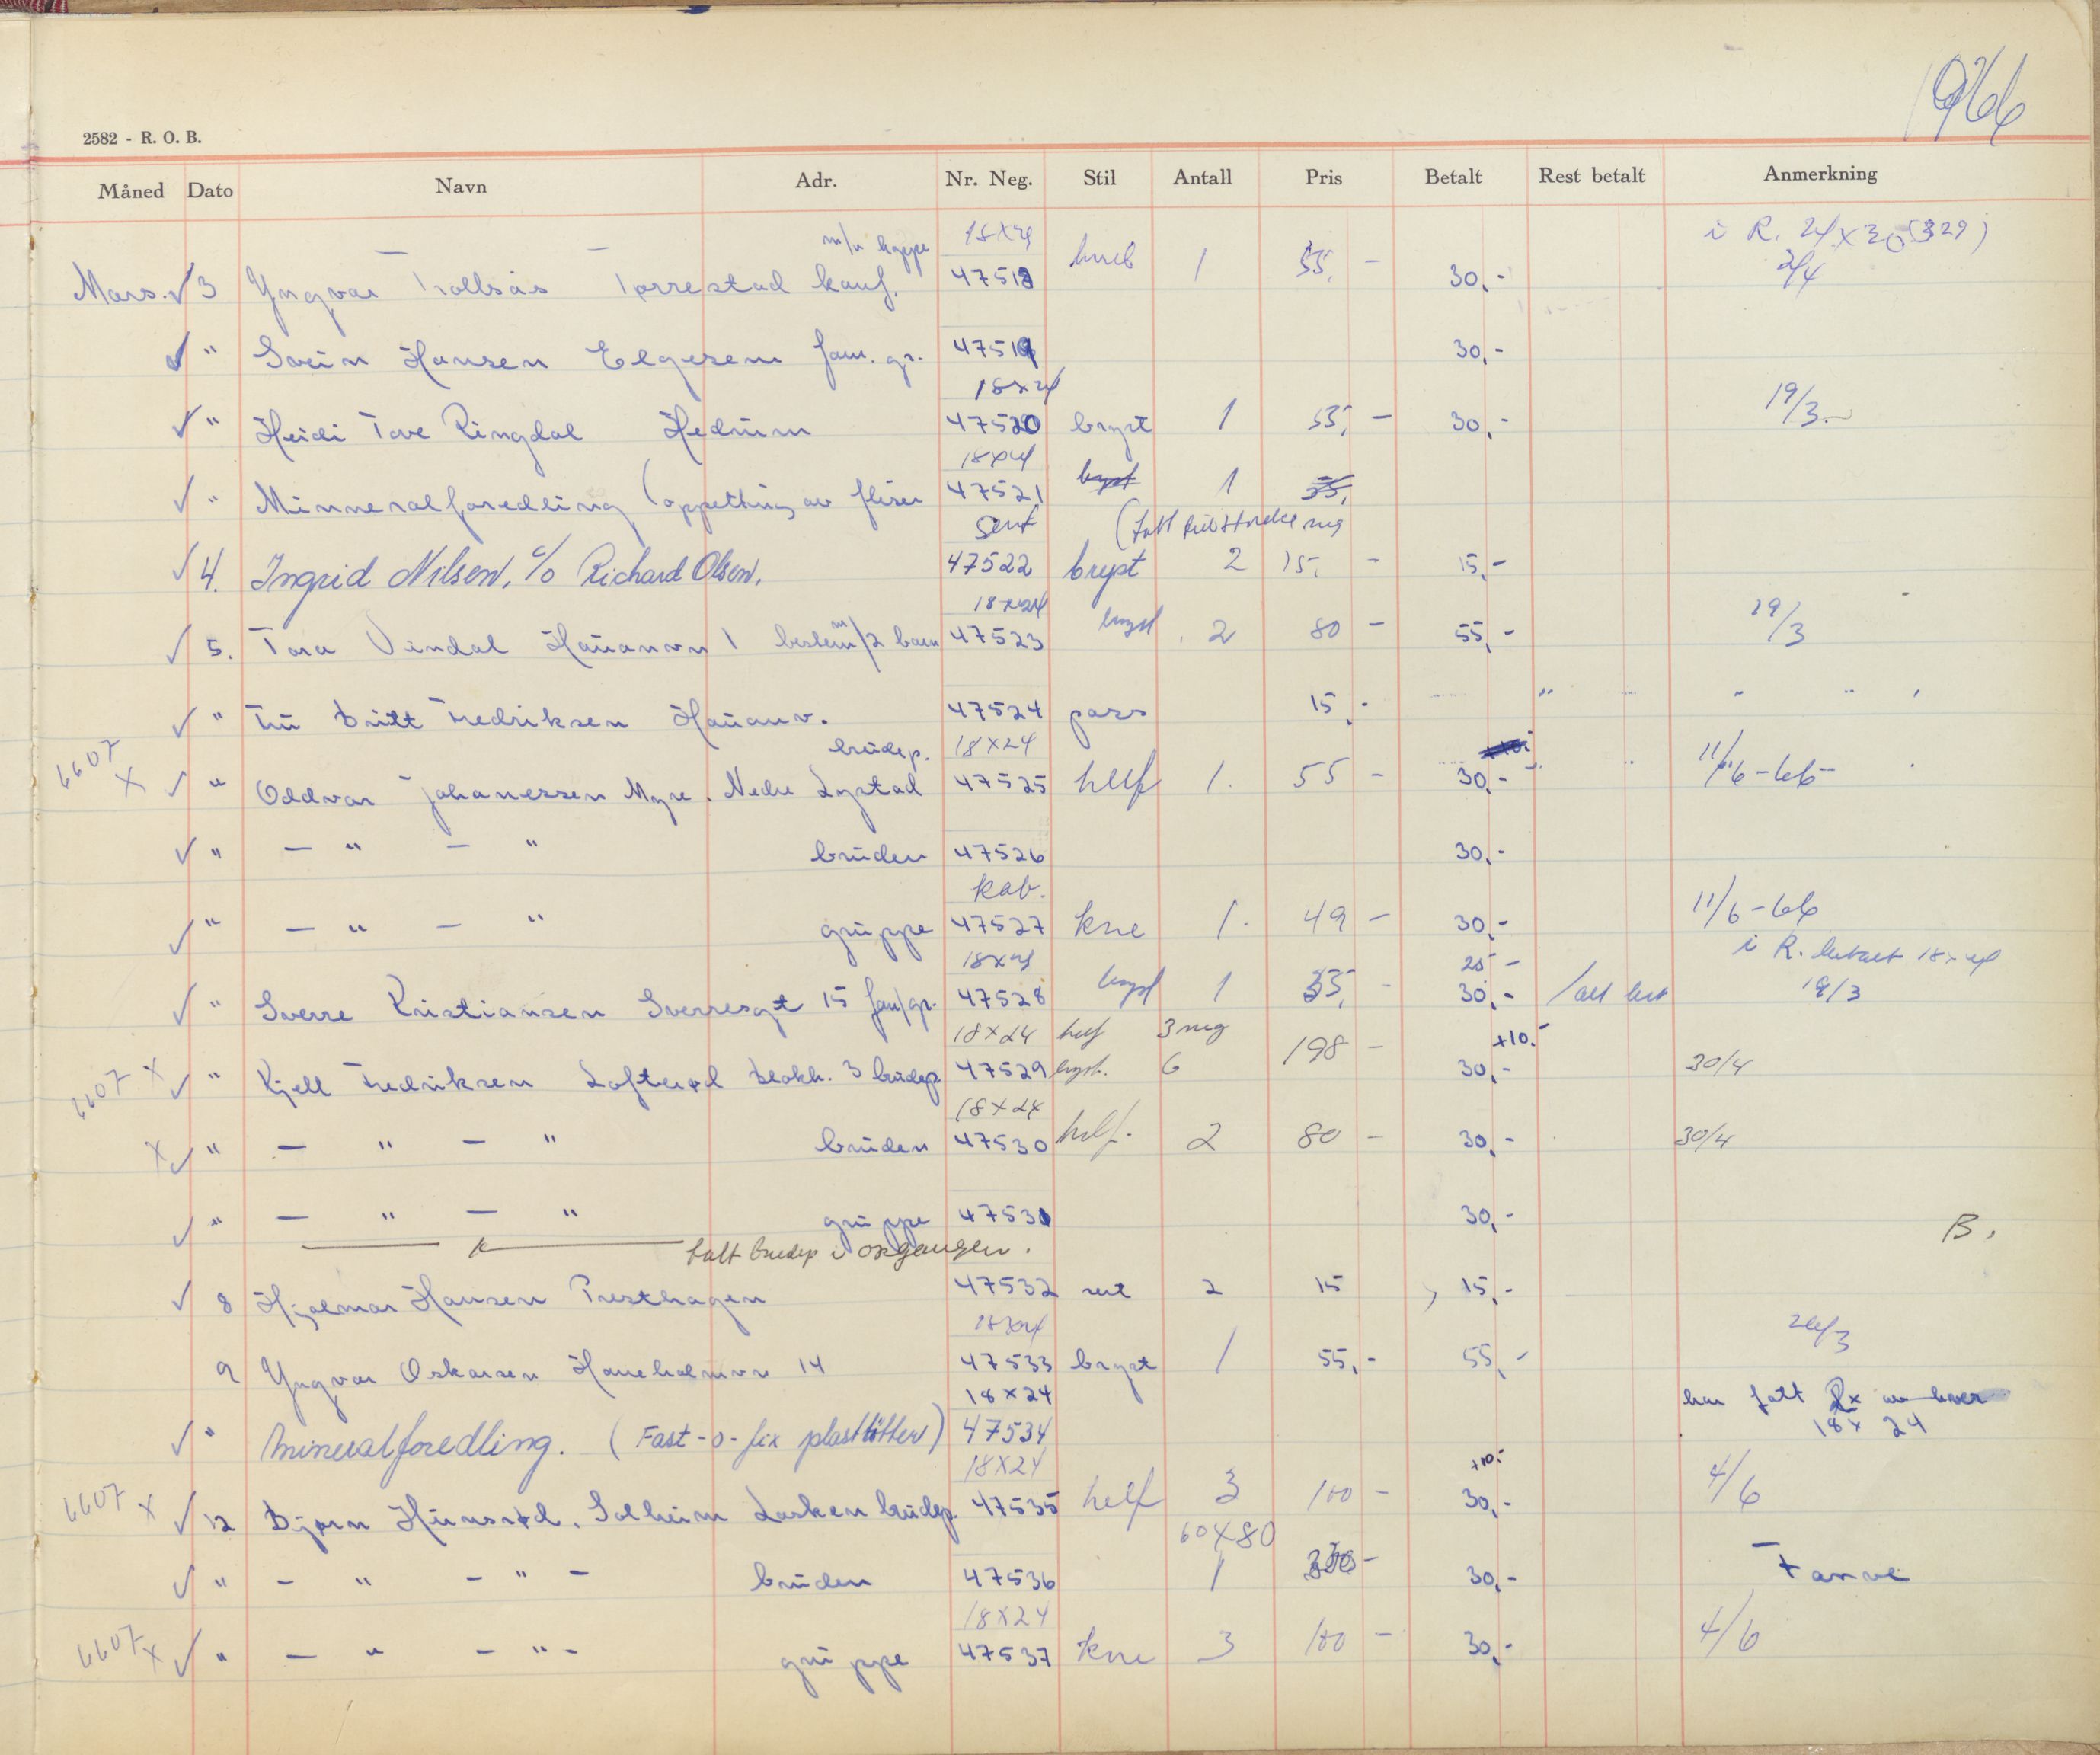 1966
2582 - R. O. B.
Måned Dato Navn Adr. Nr. Neg. Stil Antall Pris Betalt Rest betalt Anmerkning
18x24 i R. 24x30 (329)
Mars. ✓ 3 Yngvar Trollsås Tørrestad 47518 1 55,- 30,- 2/4
✓ " Svein Hansen Elgesem fam. gr. 47519 30,-
18x24
✓ " Heidi Tove Ringdal Hedrum 47520 bryst 1 55,- 30,- 19/3
18x24
✓ " Minneralforedling ( av fliser 47521 bryst 1 55,
✓ 4. Ingrid Nilsen, c/o Richard Olsen, 47522 bryst 2 15,- 15,-
18x24
✓ 5. Tora Vindal Hauanvn 1 m/2 barn 47523 bryst 2 80 - 55,- 29/3
✓ " Fru Britt Fredriksen Hauanv. 47524 pass 15,- "
brudep. 18x24
6607 x ✓ " Oddvar Johanessen Myre. Nedre Lystad 47525 helf 1. 55 - 30,- 11/6-66
✓ " — " — " bruden 47526 30,-
kab.
✓ " — " — " gruppe 47527 kne 1. 49 - 30,- 11/6-66
18x24 25 - i R. 18x24
✓ " Sverre Kristiansen Sverresgt 15 fam/gr. 47528 bryst 1 55,- 30,- 19/3
18x24 helf 3 neg +10.-
6607 x ✓ " Kjell Fredriksen Lofterød blokk. 3 brudep 47529 bryst. 6 198 - 30,- 30/4
18x24
x ✓ " — " — " bruden 47530 helf. 2 80 - 30,- 30/4
✓ " — " — " gruppe 47531 30,-
fatt brudep i oxgangen. B.
✓ 8 Hjalmar Hansen Presthagen 47532 2 15 15,-
18x24 26/3
9 Yngvar Oskarsen 14 47533 bryst 1 55,- 55,-
18x24 har fått av hver
✓ " Mineralforedling. (Fast-o-fix ) 47534 18x24
18x24 +10.-
6607 x ✓ 12 Bjørn Hunsrød. Solheim Lasken brudep. 47535 helf 3 100 - 30,- 4/6
60x80
✓ " - " - " - bruden 47536 1 30,- Farve
18x24
6607 x ✓ " — " - " - gruppe 47537 kne 3 100 - 30,- 4/6